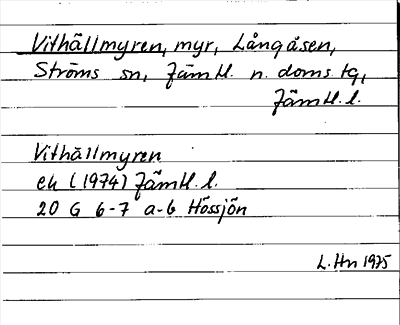 Vithällmyren, myr, Långåsen,
Ströms sn, Jämtl. n. doms. tg,
Jämtl. l.
Vithällmyren
ek (1974) Jämtl. l.
20 G 6-7 a-b Hössjön
L. Hn 1975